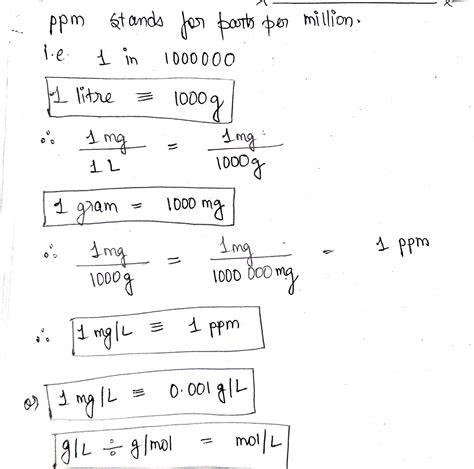 ppm stands for parts per million.
i.e 1 in 1000000
1 litre ≡ 1000g
∴ 1 mg / 1 L = 1 mg / 1000g
1 gram = 1000 mg
∴ 1 mg / 1000g = 1 mg / 1000 000 mg = 1 ppm
∴ 1 mg/L ≡ 1 ppm
or 1 mg/L ≡ 0.001 g/L
g/L ÷ g/mol = mol/L